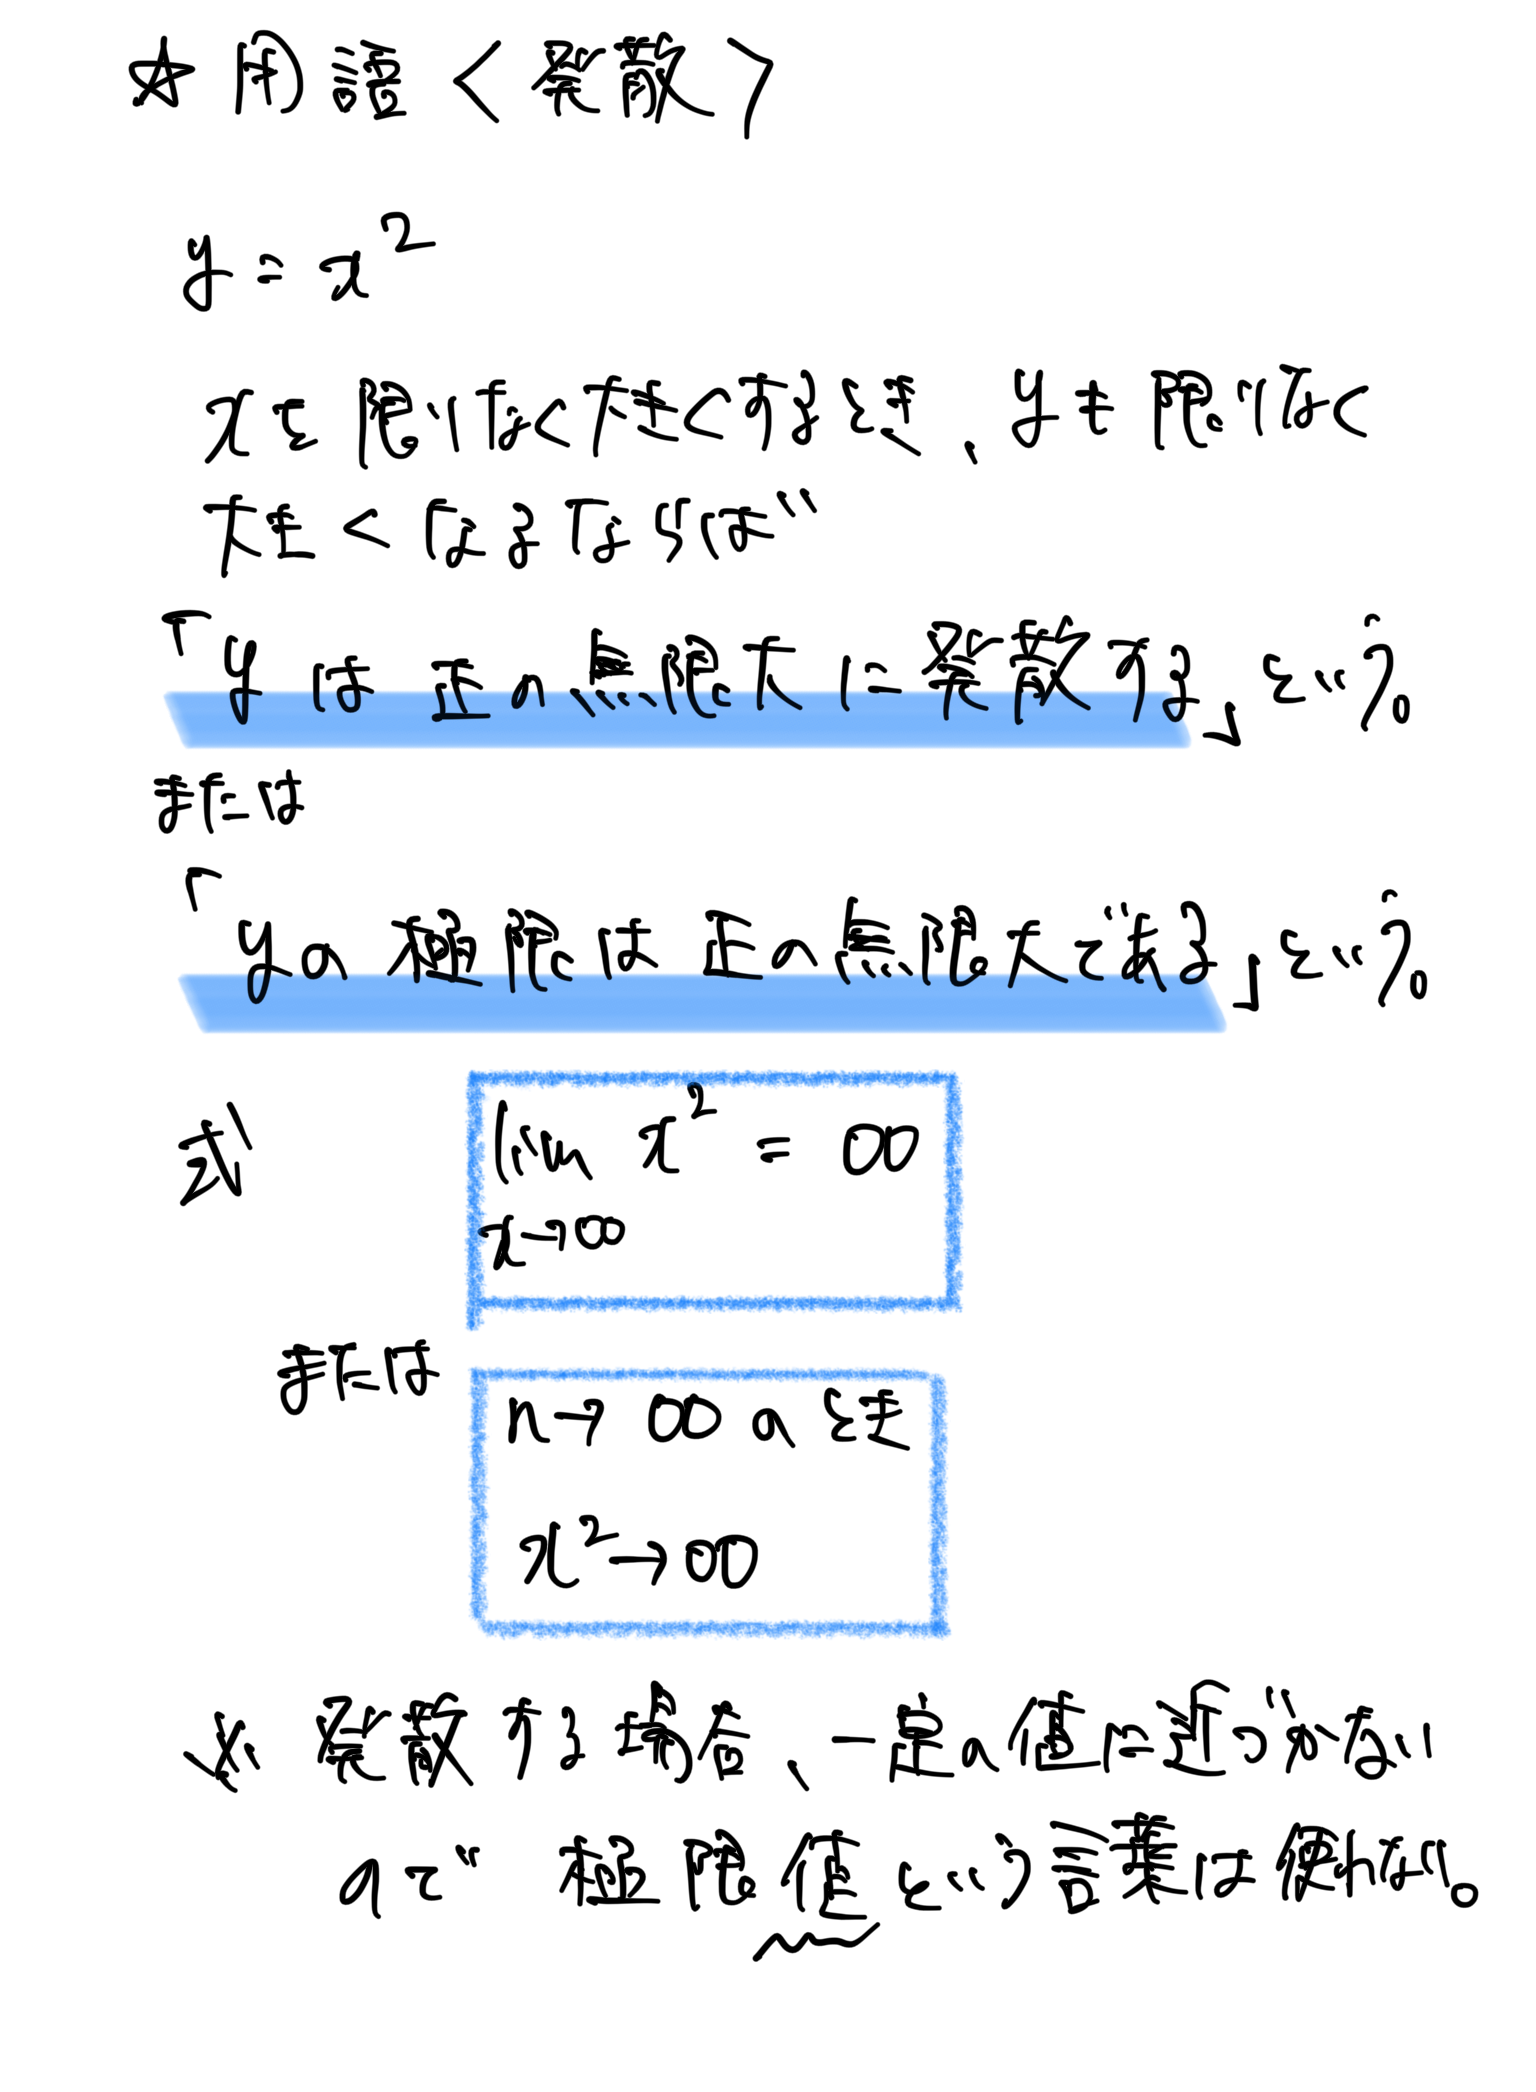 ☆ 用語〈発散〉
y = x²
xを限りなく大きくするとき、yも限りなく
大きくなるならば
「yは正の無限大に発散する」という。
または
「yの極限は正の無限大である」という。
式
lim x² = ∞
x→∞
または
n→∞のとき
x²→∞
※ 発散する場合、一定の値に近づかない
ので 極限値という言葉は使れない。